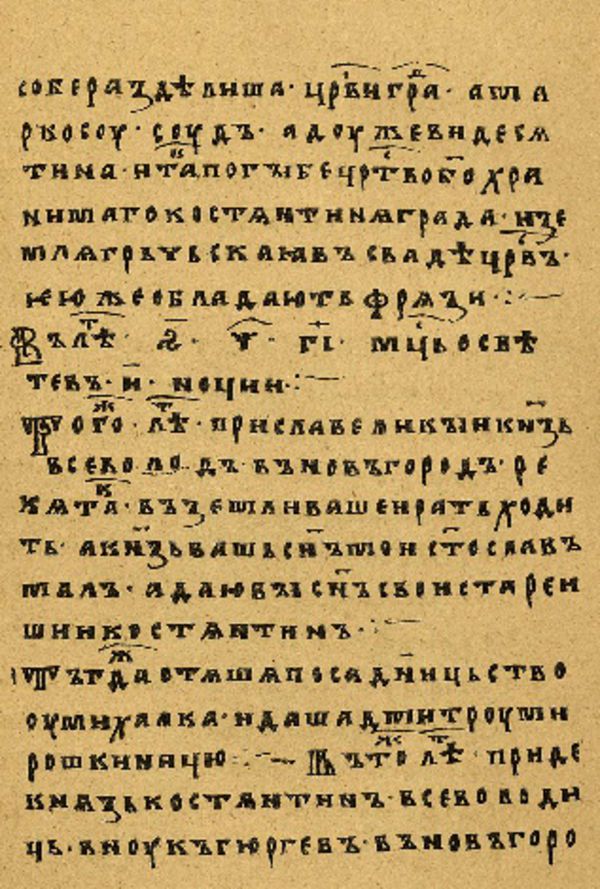 собе раздѣлиша · цр҃ьи гра · а ма
ркосоу · соудъ · а доужеви десѧ
тина · и та погыбе црⷭ҇тво б҃охра
нимаго костѧнтинѧграда · и зе
млѧ грьчьскаꙗ въ свадѣ цр҃въ ·
ѥю же обладають фрѧзи ·:·
Въ лѣⷮ · ҂ѕ҃ · ѱ҃ · г҃і · мц҃ь освѣ
тевъ · и҃ · ночии ·:·
Тогоⷤ · лѣⷮ · присла великыи кн҃зь
всеволодъ · въ новъгородъ · ре
кѧ таⷦ · въ земли вашеи рать ходи
ть · а кн҃зь вашь сн҃ъ мои ст҃ославъ
малъ · а даю вы сн҃ъ свои стареи
шии костѧнтинъ ·:·
Тъгдаⷤ отѧша посадницьство
оу михалка · и даша дмитроу ми
рошкиницю ·:· Въ тоⷤ лѣⷮ · приде
кнѧзь костѧнтинъ · всеволоди
ць · вноукъ гюргевъ · въ новъгоро